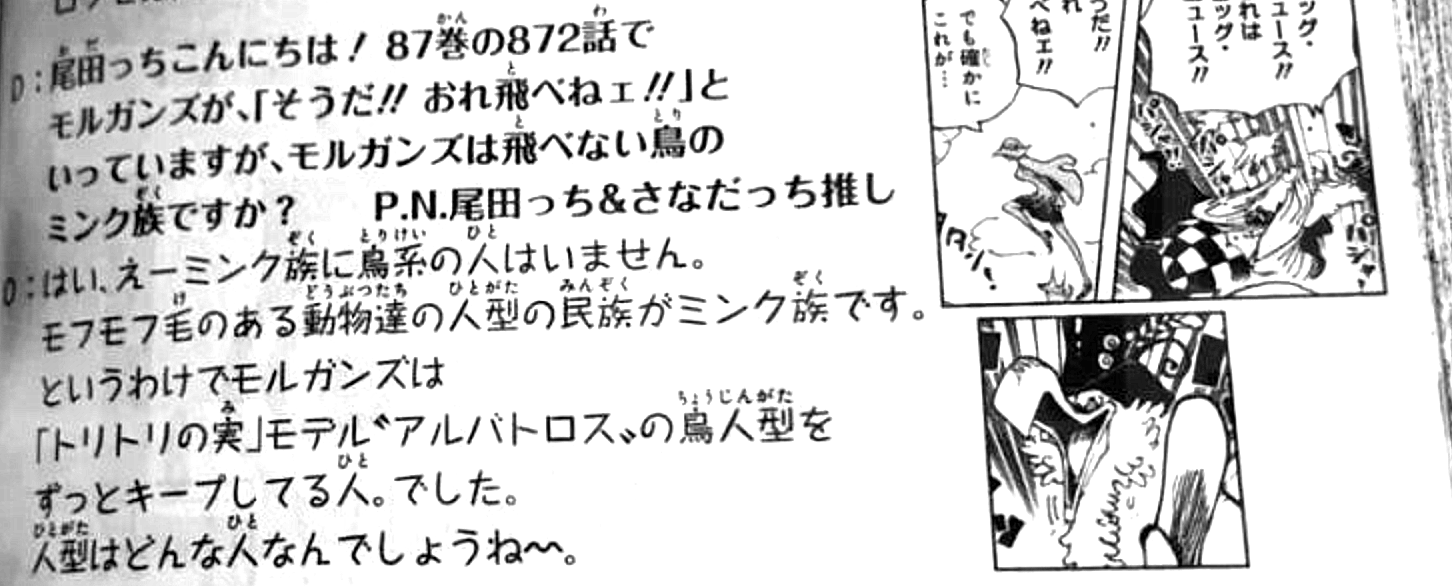 D：尾田っちこんにちは！ 87巻の872話で
モルガンズが、「そうだ!! おれ飛べねェ!!」と
いっていますが、モルガンズは飛べない鳥の
ミンク族ですか？ P.N.尾田っち&さなだっち推し
O：はい、えーミンク族に鳥系の人はいません。
モフモフ毛のある動物達の人型の民族がミンク族です。
というわけでモルガンズは
「トリトリの実」モデル〝アルバトロス〟の鳥人型を
ずっとキープしてる人。でした。
人型はどんな人なんでしょうね〜。
ッグ・
ュース!!
れは
ッグ・
ュース!!
うだ!!
れ
べねェ!!
でも確かに
これが…
タシ!
パシ